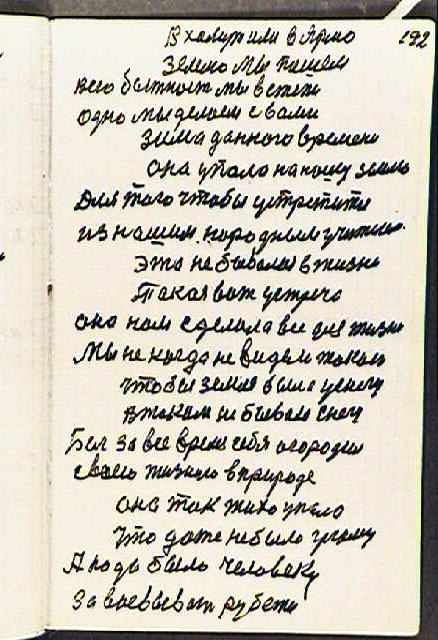 В халат или в Ярмо 192
Землю мы пашем
всего бытност мы в
одно мы делаем с вами
Зима данного времени
она упала на нашу землю
Для того чтобы устретится
из нашим народным учителем
Это не бывалое в жизни
Такая вот устреча
она нам сделала все для жизни
Мы не когда не видели таком
чтобы земля была у снегу
в таком не бывали снег
Был за все время себя огородил
своею жизнею в природе
она так тихо упала
что даже не было
А надо было человеку
за воевывать рубежи